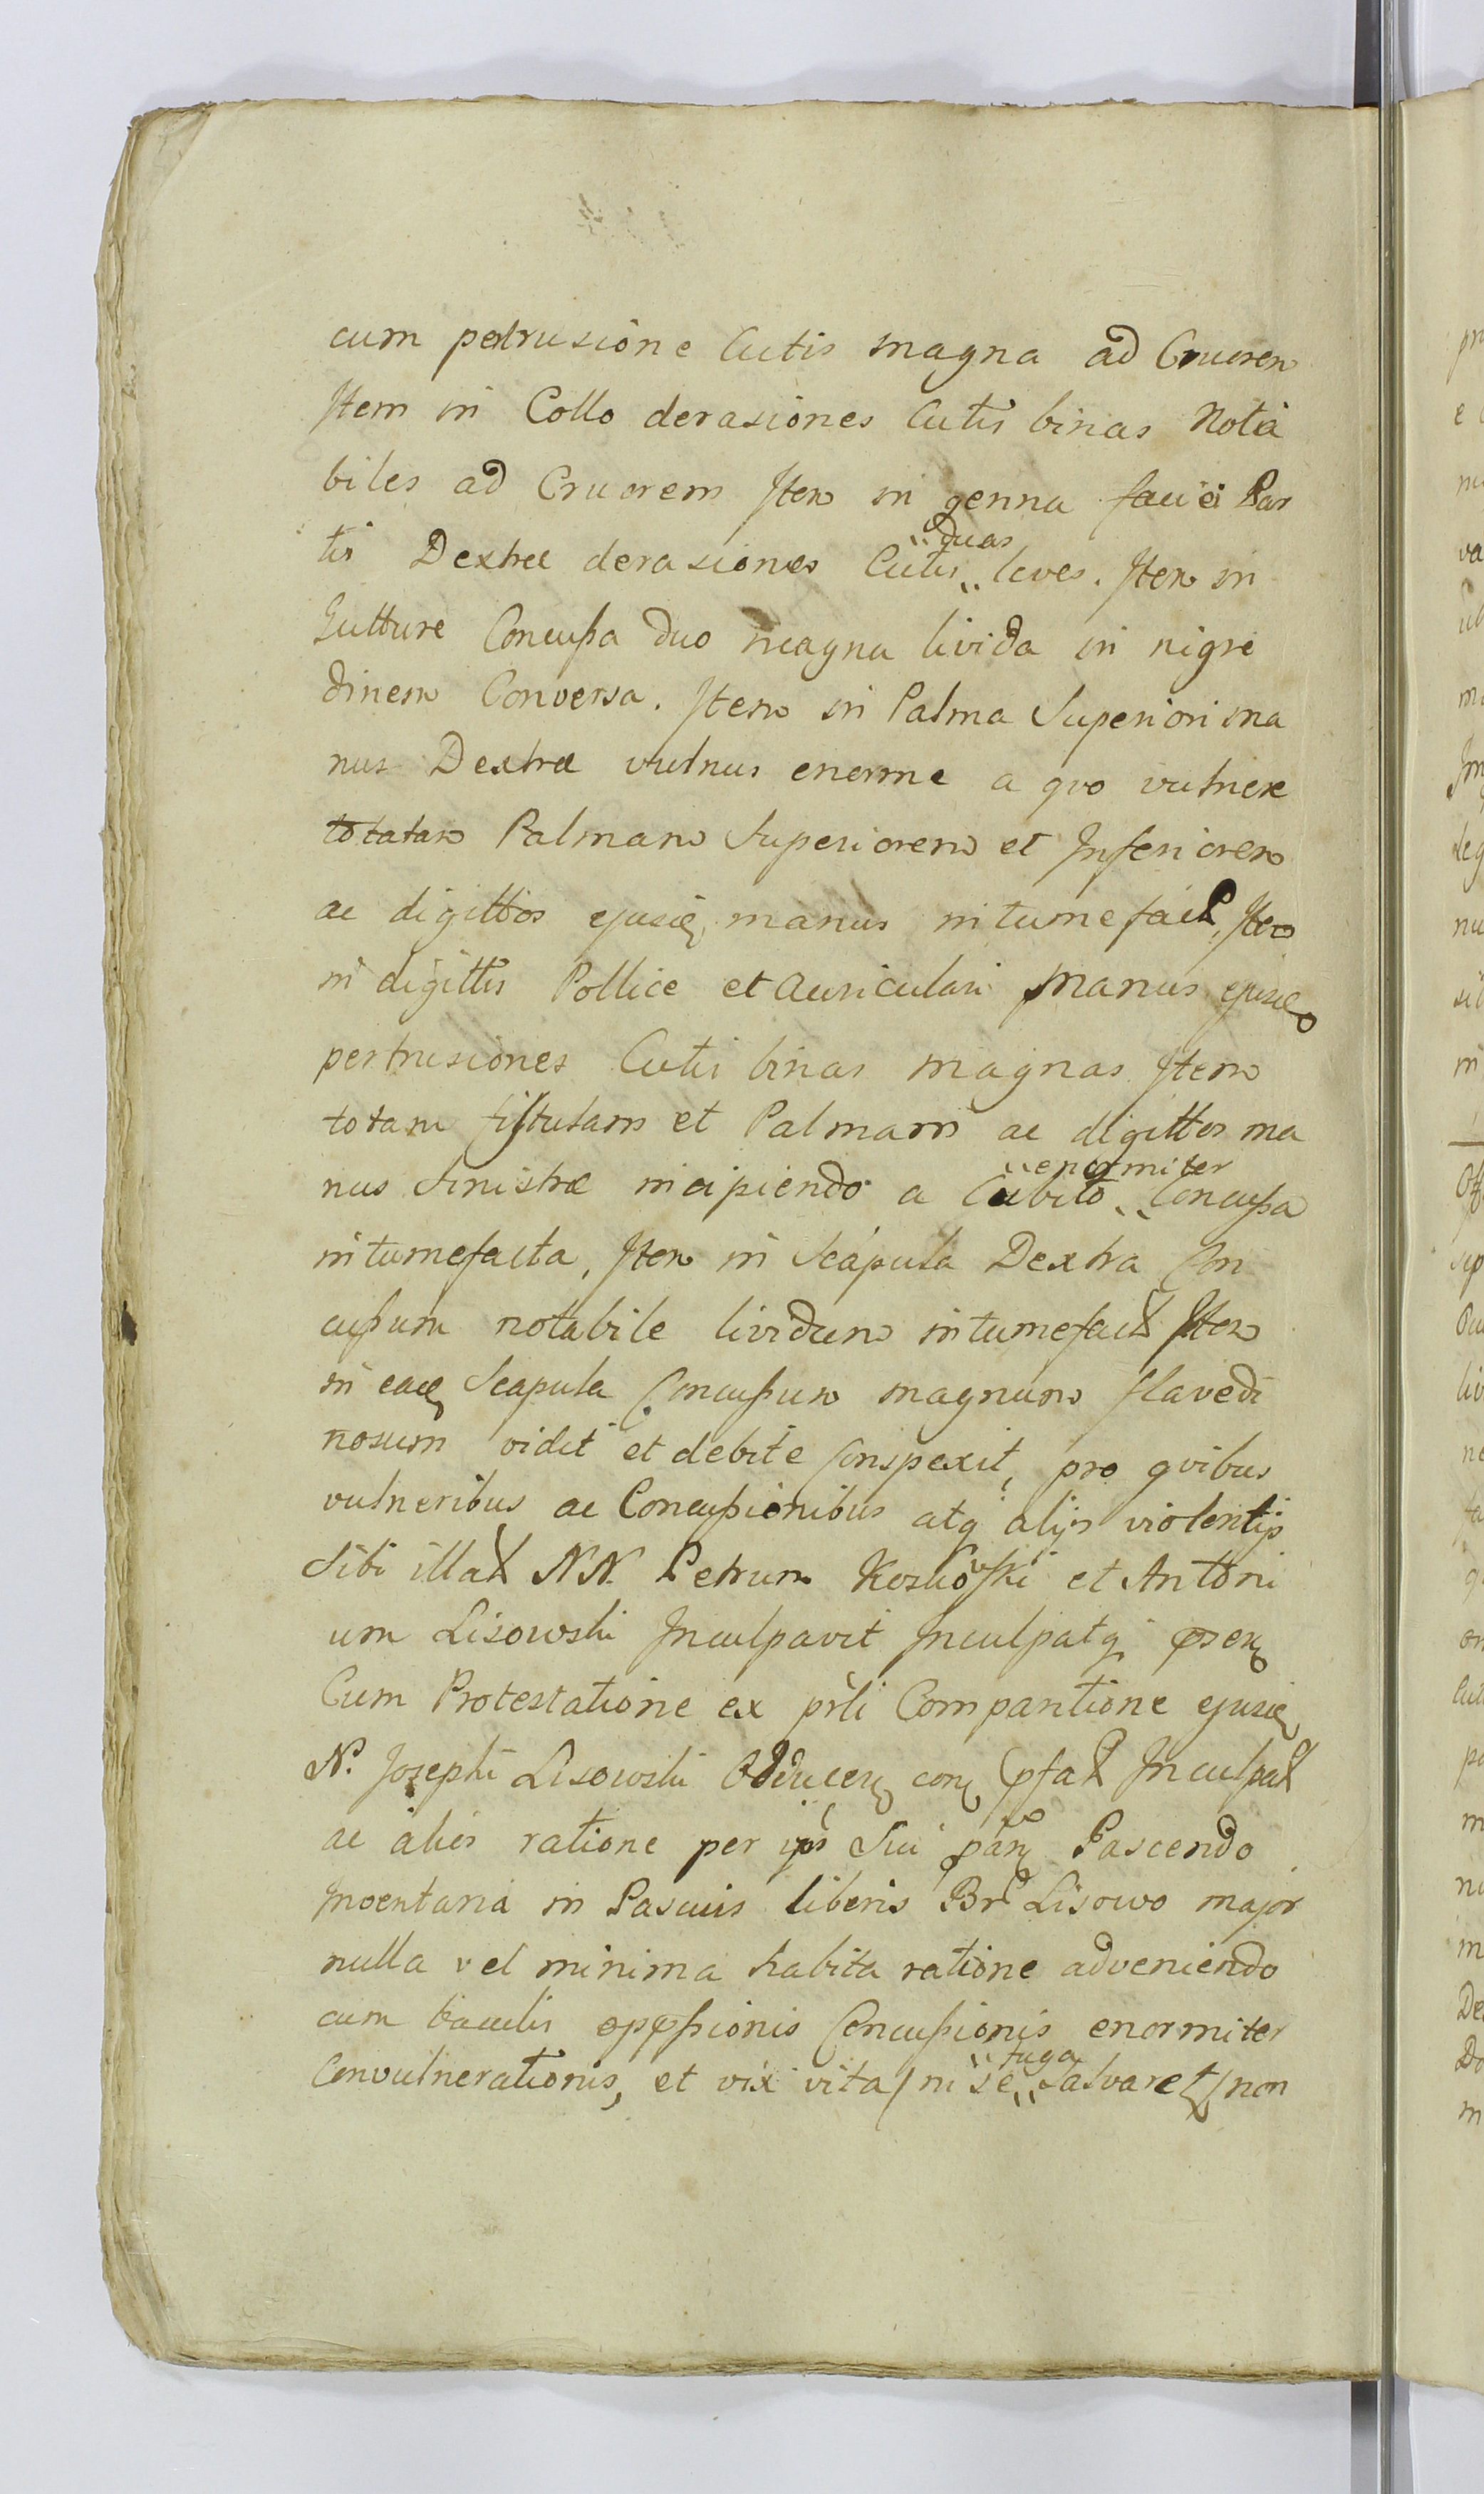 cum pertrusione Cutis magna ad Cruorem
Item in Collo derasiones Cutis binas Nota
biles ad Cruorem Item in genna faciei Par
tis Dextræ derasiones Cutis duas leves. Item in
Gutture Concussa duo magna livida in nigre
dinem Conversa. Item in Palma Superiori ma
nus Dextræ vulnus enorme a qvo vulnere
totatam Palmam Superiorem et Inferiorem
ac digittos ejusd manus intumefact, Item
in digittis Pollice et Auriculari Manus ejusd
pertrusiones Cutis binas magnas Item
totam fistulam et Palmam ac digittos ma
nus Sinistræ incipiendo a Cubito enormiter Concussa
intumefacta, Item in Scapula Dextra Con
cussum notabile lividum intumefact Item
in ead Scapula Concussum magnum flavedi
nosum vidit et debite Conspexit, pro qvibus
vulneribus ac Concussionibus atq alijs violentijs
Sibi illat NN. Petrum Koskowski et Antoni
um Lisowski Inculpavit Inculpatq
Cum Protestatione ex prli Comparitione ejusd
N. Josephi Lisowski Adducen con pfat Inculpat
ac alios ratione per ips Sui Pascendo
in Pascuis liberis Br Lisowo major
nulla vel minima habita ratione adveniendo
cum baculis oppssionis Concussionis enormiter
Convulnerationis, et vix vita / ni se fuga Salvaret / non